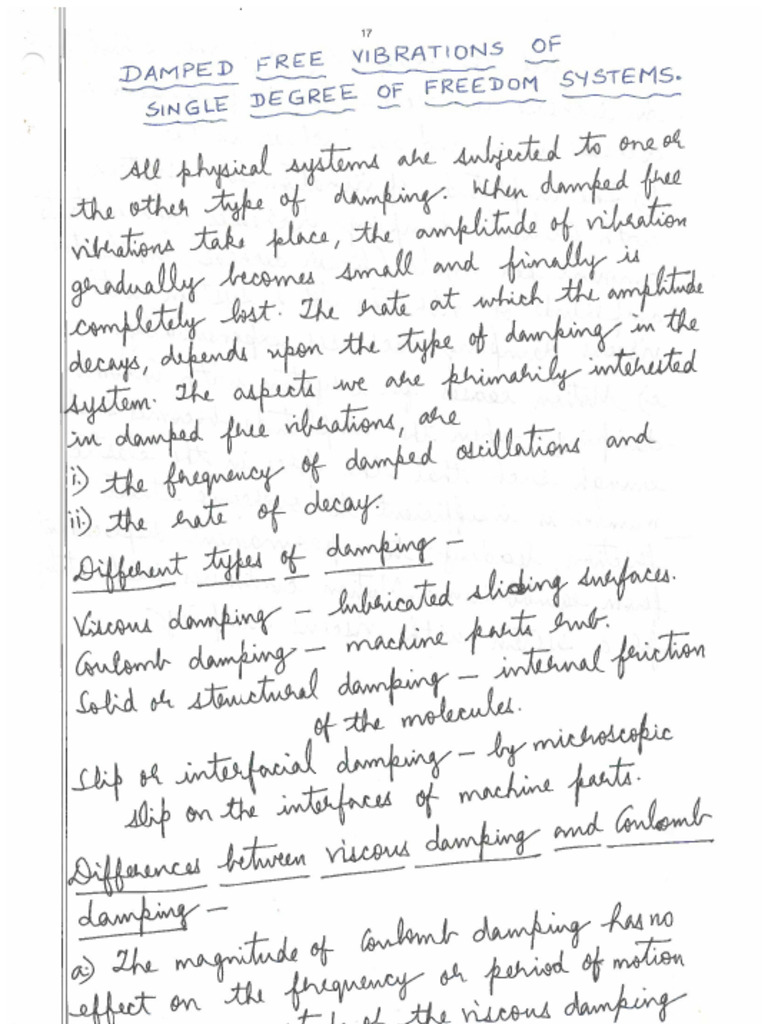 17
DAMPED FREE VIBRATIONS OF
SINGLE DEGREE OF FREEDOM SYSTEMS.
All physical systems are subjected to one or
the other type of damping. When damped free
vibrations take place, the amplitude of vibration
gradually becomes small and finally is
completely lost. The rate at which the amplitude
decays, depends upon the type of damping in the
system. The aspects we are primarily interested
in damped free vibrations, are
i.) the frequency of damped oscillations and
ii.) the rate of decay.
Different types of damping –
Viscous damping – lubricated sliding surfaces.
Coulomb damping – machine parts rub.
Solid or structural damping – internal friction
of the molecules.
Slip or interfacial damping – by microscopic
slip on the interfaces of machine parts.
Differences between viscous damping and Coulomb
damping –
a.) The magnitude of Coulomb damping has no
effect on the frequency or period of motion
of the viscous damping